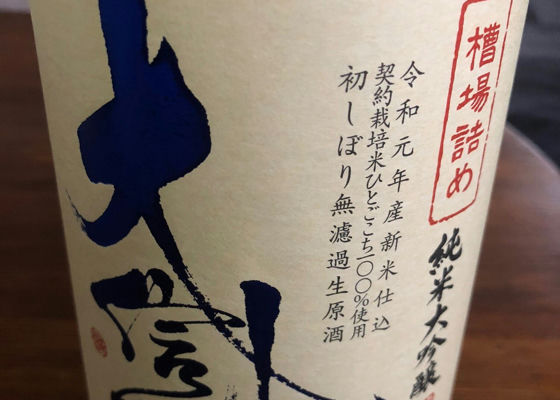 槽場詰め
純米大吟醸
令和元年産新米仕込
契約栽培米ひとごこち一〇〇%使用
初しぼり無濾過生原酒
大信州